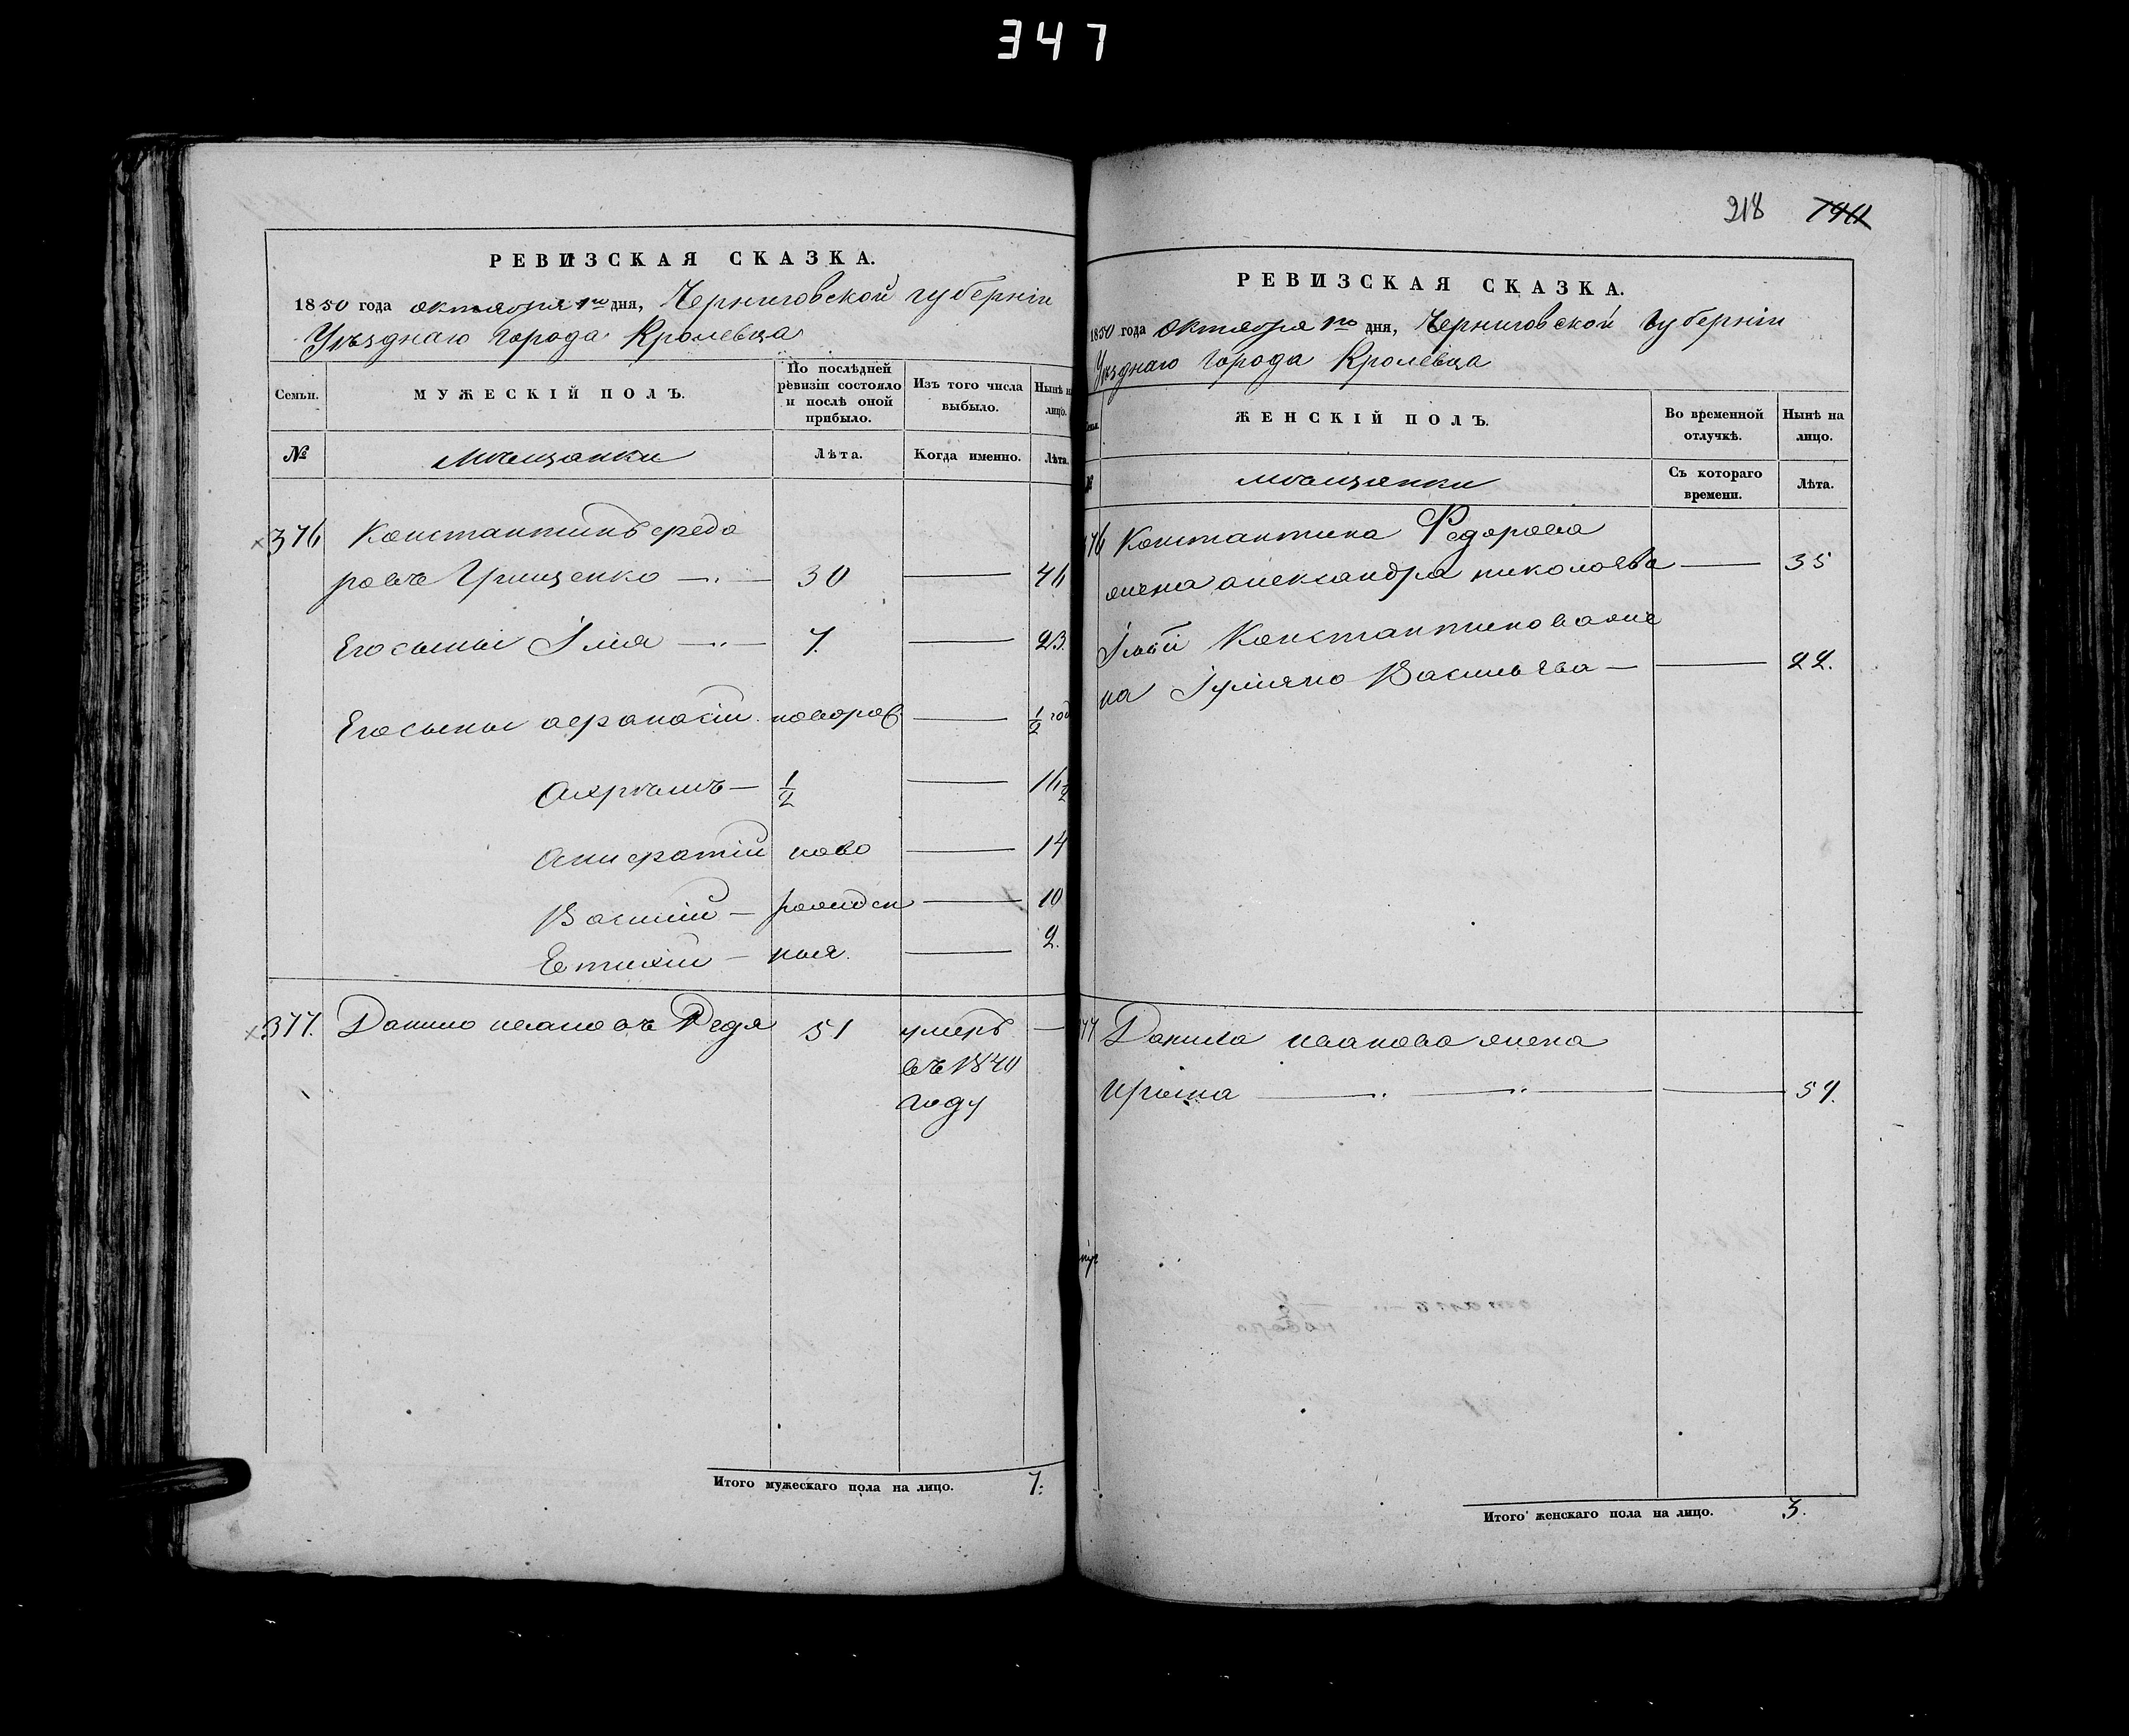 347
РЕВИЗСКАЯ СКАЗКА.
1850 года октября 1го дня, Черниговской губерніи
Уѣзднаго города Кролевца
Семьи.
МУЖЕСКІЙ ПОЛЪ.
По послѣдней ревизіи состояло и послѣ оной прибыло.
Изъ того числа выбыло.
Нынѣ на лицо.
№
Мѣщанки
Лѣта.
Когда именно.
Лѣта.
376 Константинъ Федо
ровъ Грищенко 30 46
Его сыны Ілія 7. 23.
Его сыны Афанасій новорож ½ год
Ахрѣмъ ½ 16½
ново 14
Василій рожден 10
Евтихій ныя. 2.
377. Данило Ивановъ Редя 51 умеръ
въ 1840
году
Итого мужескаго пола на лицо. 7.
218 740
РЕВИЗСКАЯ СКАЗКА.
1850 года Октября 1го дня, Черниговской Губерніи
Уѣзднаго города Кролевца
ЖЕНСКІЙ ПОЛЪ.
Во временной отлучкѣ.
Нынѣ на лицо.
№
мѣщанки
Съ котораго времени.
Лѣта.
376 Константина Федорова
жена Александра Николаева 35
Ільи Константинова же
на Іуліяна Васильева 22.
377 Данила Иванова жена
Ирина 57.
Итого женскаго пола на лицо. 3.